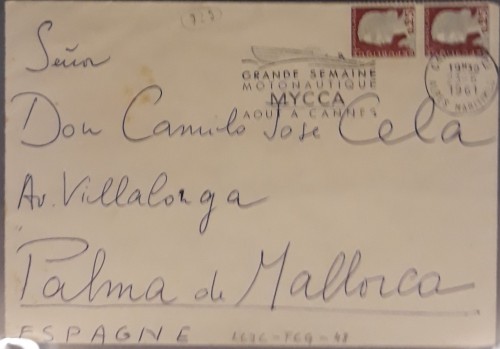 Señor
GRANDE SEMAINE
MOTONAUTIQUE
MYCCA
AOUT A CANNES
1961
Don Camilo José Cela
Av. Villalonga
Palma de Mallorca
ESPAGNE